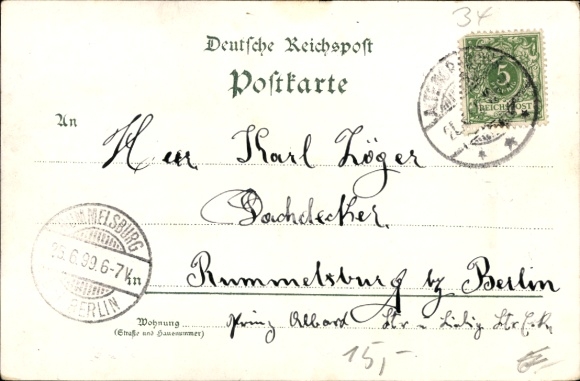 34
Deutsche Reichspost
Postkarte
5
REICHSPOST
An
Herr Karl Zöger
Dachdecker.
Rummelsburg by Berlin
RUMMELSBURG
23.6.99.6-7½N
BERLIN
Wohnung
(Straße und Hausnummer)
Prinz Albard Str u Str Eck.
15,-